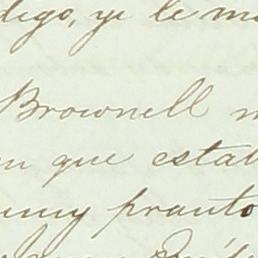 digo, y le m
Brownell n
n que estab
muy pronto